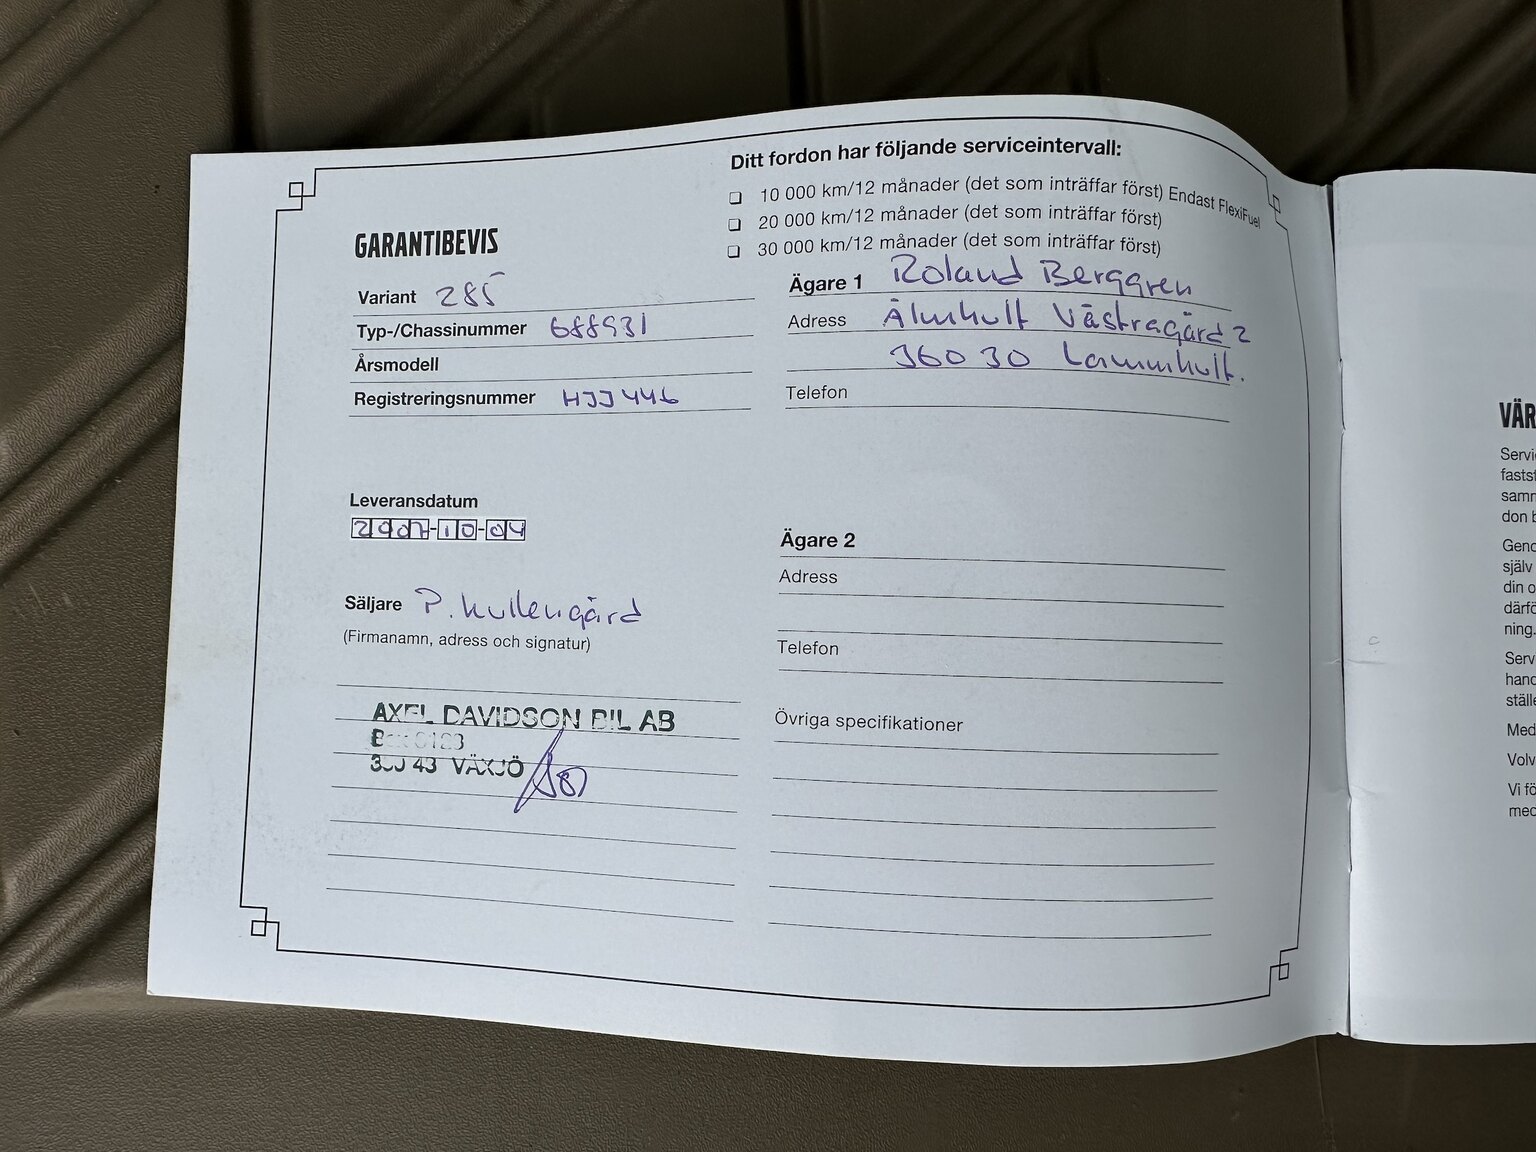 Ditt fordon har följande serviceintervall:
❏ 10 000 km/12 månader (det som inträffar först) Endast FlexiFuel
❏ 20 000 km/12 månader (det som inträffar först)
❏ 30 000 km/12 månader (det som inträffar först)
GARANTIBEVIS
Variant 285
Typ-/Chassinummer 688931
Årsmodell
Registreringsnummer HJJ446
Leveransdatum
2007-10-04
Säljare P. Kullengård
(Firmanamn, adress och signatur)
AXEL DAVIDSON BIL AB
Box 0123
43 VÄXJÖ
Ägare 1 Roland Berggren
Adress Älmhult Västragård 2
36030 Lammhult.
Telefon
Ägare 2
Adress
Telefon
Övriga specifikationer
VÄR
Servi
fastst
samm
don b
Geno
själv
din o
därfö
ning.
Serv
hand
ställe
Med
Volv
Vi fö
med